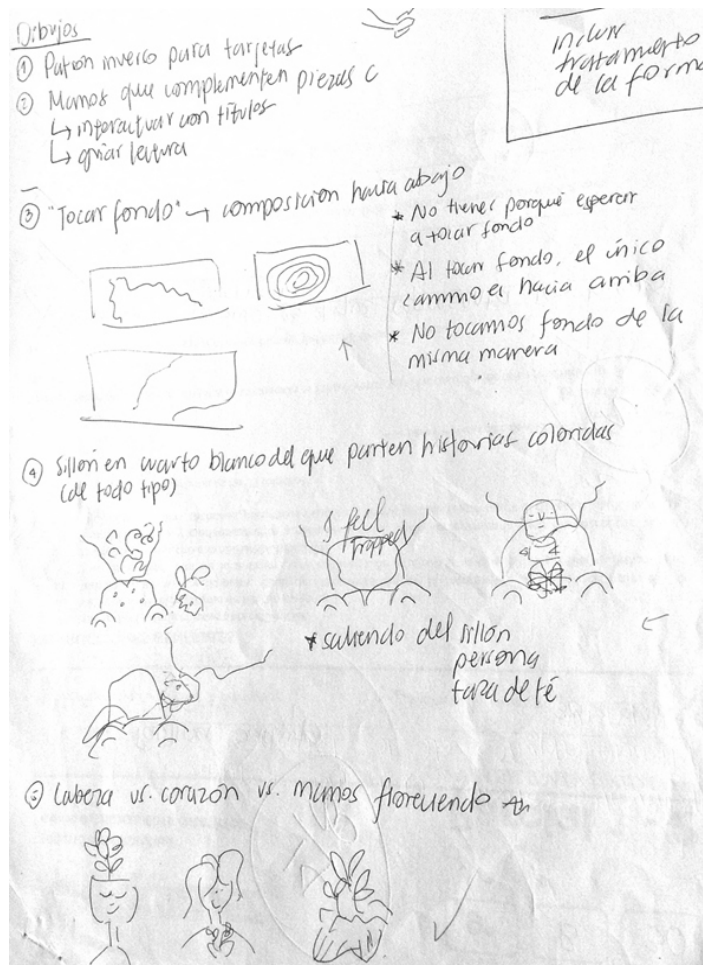 Dibujos
① Patrón inverso para tarjetas
② Manos que complementen piezas c
↳ interactuar con títulos
↳ guiar lectura
incluir
tratamiento
de la forma
③ "Tocar fondo" → composición hacia abajo
* No tienes porqué esperar
a tocar fondo
* Al tocar fondo, el único
camino es hacia arriba
* No tocamos fondo de la
misma manera
④ Sillón en cuarto blanco del que parten historias coloridas
(de todo tipo)
I feel
trapped
* saliendo del sillón
persona
taza de té
⑤ Cabeza vs. corazón vs. manos floreciendo